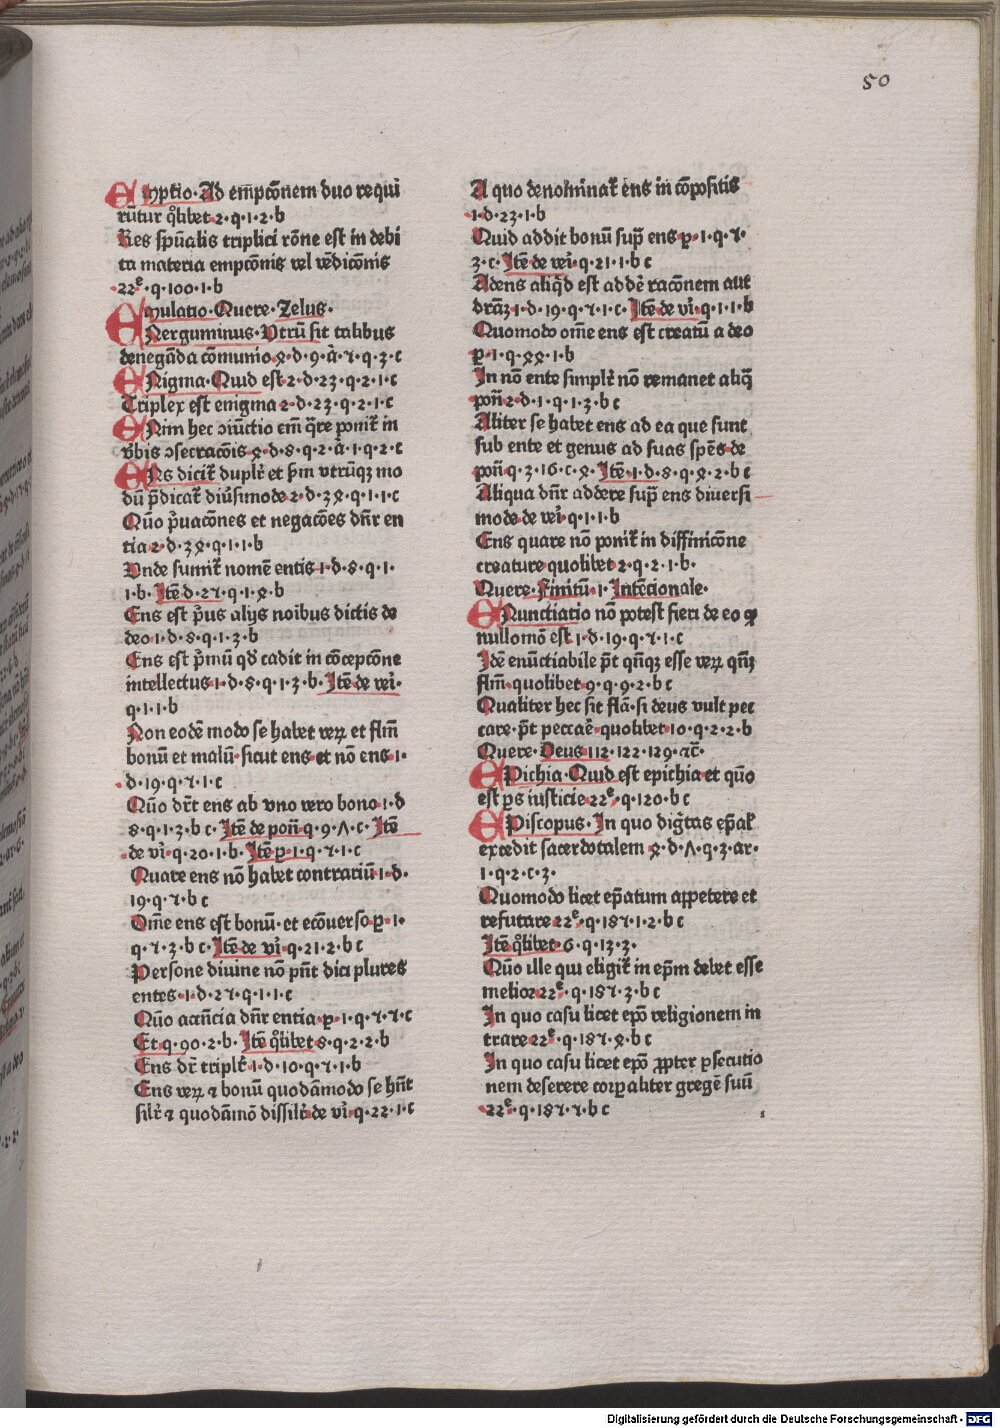 50
Emptio·Ad emp̄cōnem duo requi
rūtur q̊libet 2·q·1·2·b
Res spūalis triplici rōne est in debi
ta materia empcōnis vel vēdicōnis
22ᵉ·q·100·1·b
Emulatio·Quere·Zelus·
ENerguminus·Utrū sit talibus
denegāda cōmunio 4·d·9·ar̄·5·q·3·c
ENigma·Quid est 2·d·23·q·2·1·c
Triplex est enigma 2·d·23·q·2·1·c
ENim hec ↄiūctio cur̄ q̄re poniť in
v̄bis ↄsecracōis 4·d·8·q·2·ar̄·1·q·2·c
ENs diciť duplr̄ et ẜm vtrūqꝫ mo
dū p̄dicať diūsimode 2·d·34·q·1·1·c
Quō p̄uacōnes et negacōes dn̄r en
tia 2·d·34·q·1·1·b
Unde sumiť nomē entis 1·d·8·q·1·
1·b·Itē d·25·q·1·4·b
Ens est p̄us alijs noībus dictis de
deo 1·d·8·q·1·3·b
Ens est p̄mū qd̄ cadit in cōcepcōne
intellectus 1·d·8·q·1·3·b·Itē de vei·
q·1·1·b
Non eodē modo se habet verꝝ et flm̄
bonū et malū·sicut ens et nō ens 1·
d·19·q·5·1·c
Quō dr̄t ens ab vno vero bono 1·d
8·q·1·3·b c·Itē de pon̄·q·9·7·c·Itē
de vi̇·q·20·1·b·Itē p·1·q·5·1·c
Quare ens nō habet contrariū 1·d·
19·q·5·b c
Om̄e ens est bonū·et ecōuerso p·1·
q·5·3·b c·Itē de vi̇·q·21·2·b c
Persone diuine nō pn̄t dici plures
entes·1·d·25·q·1·1·c
Quō accn̄cia dn̄r entia p·1·q·5·5·c
Et q·90·2·b·Itē q̊libet 8·q·2·2·b
Ens dr̄ triplr̄ 1·d·10·q·5·1·b
Ens verꝝ ⁊ bonū quodāmodo se hn̄t
silr̄ ⁊ quodāmō dissilr̄ de vi̇·q·22·1·c
A quo denominať ens in cōpositis
1·d·23·1·b
Quid addit bonū sup̄ ens p·1·q·5·
3·c·Itē de vei̇·q·21·1·b c
Adens aliq̄d est addē racōnem aut
dr̄aꝫ 1·d·19·q·5·1·c·Itē de vi̇·q·1·1·b
Quomodo om̄e ens est creatū a deo
p·1·q·44·1·b
In nō ente simplr̄ nō remanet aliq̄
pon̄ 2·d·1·q·1·3·b c
Aliter se habet ens ad ea que sunt
sub ente et genus ad suas spēs de
pon̄ q·3·16·c·4·Itē 1·d·8·q·4·2·b c
Aliqua dn̄r addere sup̄ ens diuersi
mode de vei̇·q·1·1·b
Ens quare nō poniť in diffinicōne
creature quolibet 2·q·2·1·b·
Quere·Finitū·1·Intēcionale·
ENunctiatio nō potest fieri de eo qꝫ
nullomō est 1·d·19·q·5·1·c
Idē enūctiabile pt̄ qn̄qꝫ esse verꝝ qn̄qꝫ
flm̄·quolibet·9·q·9·2·b c
Qualiter hec sit flā·si deus vult pec
care·pt̄ peccaē·quolibet·10·q·2·2·b
Quere·Deus 112·122·129·⁊c̄·
EPichia·Quid est epichia et quō
est ps iusticie 22ᵉ·q·120·b c
EPiscopus·In quo dig̃tas ep̄ak
excedit sacerdotalem 4·d·7·q·3·ar·
1·q·2·c·3·
Quomodo licet ep̄atum appetere et
refutare 22ᵉ·q·185·1·2·b c
Itē q̊libet·6·q·13·3·
Quō ille qui eligiť in ep̄m debet esse
melior 22ᵉ·q·185·3·b c
In quo casu licet epō religionem in
trare 22ᵉ·q·185·4·b c
In quo casu licet epō ꝓpter ꝑsecutio
nem deserere corꝑaliter gregē suū
22ᵉ·q·185·5·b c
Digitalisierung gefördert durch die Deutsche Forschungsgemeinschaft - DFG